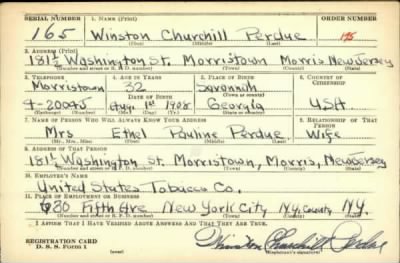 SERIAL NUMBER 1. NAME (Print) ORDER NUMBER
165 Winston Churchill Perdue
(First) (Middle) (Last)
2. ADDRESS (Print)
181½ Washington St. Morristown Morris New Jersey
(Number and street or R. F. D. number) (Town) (County) (State)
3. TELEPHONE 4. AGE IN YEARS 5. PLACE OF BIRTH 6. COUNTRY OF CITIZENSHIP
Morristown 32 Savannah
DATE OF BIRTH
4-2004J Aug. 1st 1908 Georgia USA
(Mo.) (Day) (Yr.)
7. NAME OF PERSON WHO WILL ALWAYS KNOW YOUR ADDRESS 8. RELATIONSHIP OF THAT PERSON
Mrs Ethel Pauline Perdue Wife
(Mr., Mrs., Miss) (First) (Middle) (Last)
9. ADDRESS OF THAT PERSON
181½ Washington St. Morristown, Morris, New Jersey
(Number and street or R. F. D. number) (Town) (County) (State)
10. EMPLOYER'S NAME
United States Tobacco Co.
11. PLACE OF EMPLOYMENT OR BUSINESS
630 Fifth Ave New York City N.Y. County N.Y.
(Number and street or R. F. D. number) (Town) (County) (State)
I AFFIRM THAT I HAVE VERIFIED ABOVE ANSWERS AND THAT THEY ARE TRUE.
REGISTRATION CARD
D. S. S. Form 1 (over) Winston Churchill Perdue
(Registrant's signature)